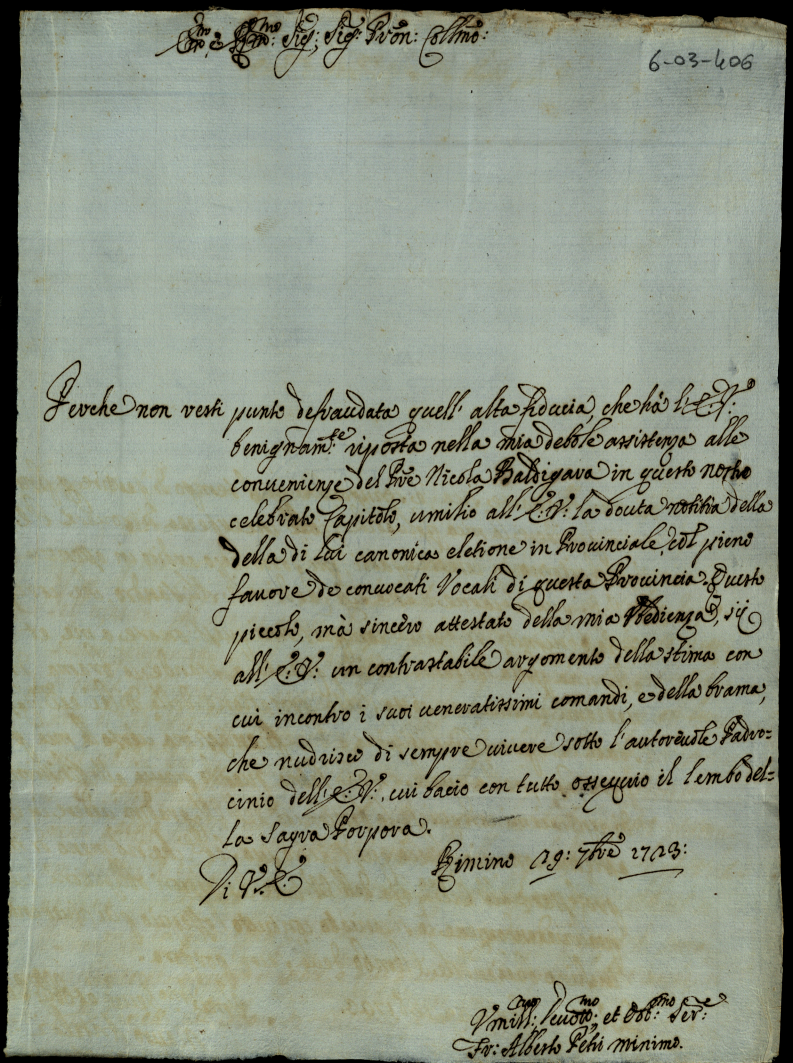 Emo, e Rmo: Sig: Sig: Pron: Collmo:
6-03-406
Perche non resti punto defraudata quell' alta fiducia, che hà l' E: V:
benignamte riposta nella mia debole assistenza alle
convenienze del Pre Nicola Baldigara in questo nostro
celebrato Capitolo, umilio all' E: V: la douta notitia della
della di lui canonica eletione in Prouinciale col pieno
fauore de conuocati Vocali di questa Prouincia. Questo
piccolo, mà sincero attestato della mia Vbedienza, sij
all' E: V: un contrastabile argomento della stima con
cui incontro i suoi ueneratissimi comandi, e della brama,
che nudrisco di sempre uiuere sotto l' autoreuole Padro=
cinio dell' E: V:, cui bacio con tutto ossequio il lembo del=
la Sagra Porpora.
Di V: E:
Rimino 29: 7bre 1723:
Vmilmo: Deuotmo: et Obmo: Sere:
Fr: Alberto Petri minimo.